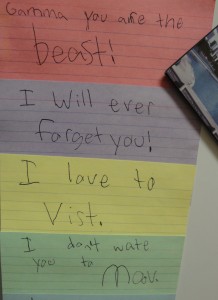 Gamma you are the
beast!
I Will ever
forget you!
I love to
Vist.
I don't wate
you to
Mov.